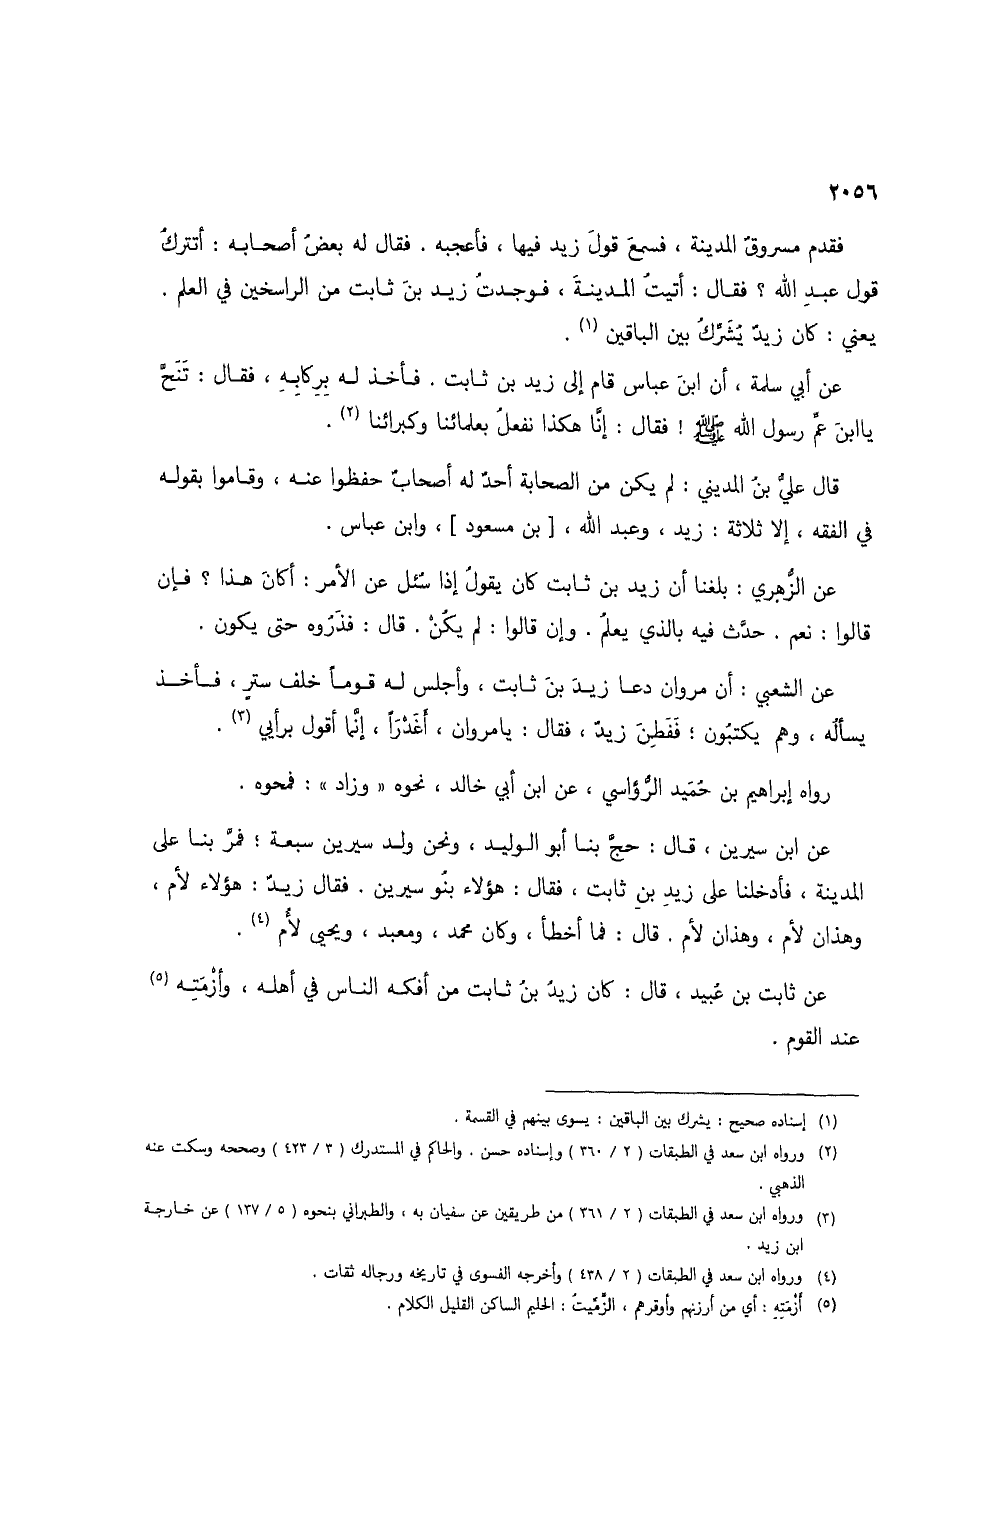 ٢٠٥٦
فقدم مسروقٌ المدينة ، فسمعَ قولَ زيد فيها ، فأعجبه . فقال له بعضُ أصحابه : أتتركُ
قول عبدِ الله ؟ فقال : أتيتُ المدينةَ ، فوجدتُ زيد بنَ ثابت من الراسخين في العلم .
يعني : كان زيدٌ يُشَرِّكُ بين الباقين (١) .
عن أبي سلمة ، أن ابنَ عباس قام إلى زيد بن ثابت . فأخذ له بِرِكابِهِ ، فقال : تَنَحَّ
ياابنَ عمِّ رسول الله ﷺ ! فقال : إنَّا هكذا نفعلُ بعلمائنا وكبرائنا (٢) .
قال عليُّ بنُ المديني : لم يكن من الصحابة أحدٌ له أصحابٌ حفظوا عنه ، وقاموا بقوله
في الفقه ، إلا ثلاثة : زيد ، وعبد الله ، [ بن مسعود ] ، وابن عباس .
عن الزُّهري : بلغنا أن زيد بن ثابت كان يقولُ إذا سُئل عن الأمر : أكانَ هذا ؟ فإن
قالوا : نعم . حدَّث فيه بالذي يعلمُ . وإن قالوا : لم يكُنْ . قال : فذَرُوه حتى يكون .
عن الشعبي : أن مروان دعا زيدَ بنَ ثابت ، وأجلس له قوماً خلف سترٍ ، فأخذ
يسألُه ، وهم يكتبُون ؛ فَفَطِنَ زيدٌ ، فقال : يامروان ، أَغَدْرَاً ، إنَّما أقول برأيي (٣) .
رواه إبراهيم بن حُمَيد الرُّؤاسي ، عن ابن أبي خالد ، نحوه « وزاد » : فمحوه .
عن ابن سيرين ، قال : حجَّ بنا أبو الوليد ، ونحن ولد سيرين سبعة ؛ فمرَّ بنا على
المدينة ، فأدخلنا على زيدِ بنِ ثابت ، فقال : هؤلاء بنُو سيرين . فقال زيدٌ : هؤلاء لأم ،
وهذان لأم ، وهذان لأم . قال : فما أخطأ ، وكان محمد ، ومعبد ، ويحيى لأُم (٤) .
عن ثابت بن عُبيد ، قال : كان زيدُ بنُ ثابت من أفكه الناس في أهله ، وأزْمَتِه (٥)
عند القوم .
(١) إسناده صحيح : يشرك بين الباقين : يسوى بينهم في القسمة .
(٢) ورواه ابن سعد في الطبقات ( ٢ / ٣٦٠ ) وإسناده حسن . والحاكم في المستدرك ( ٣ / ٤٢٣ ) وصححه وسكت عنه
الذهبي .
(٣) ورواه ابن سعد في الطبقات ( ٢ / ٣٦١ ) من طريقين عن سفيان به ، والطبراني بنحوه ( ٥ / ١٣٧ ) عن خارجة
ابن زيد .
(٤) ورواه ابن سعد في الطبقات ( ٢ / ٤٣٨ ) وأخرجه الفسوى في تاريخه ورجاله ثقات .
(٥) أَزْمَتِهِ : أي من أرزنهم وأوقرهم ، الزِّمِّيتُ : الحليم الساكن القليل الكلام .